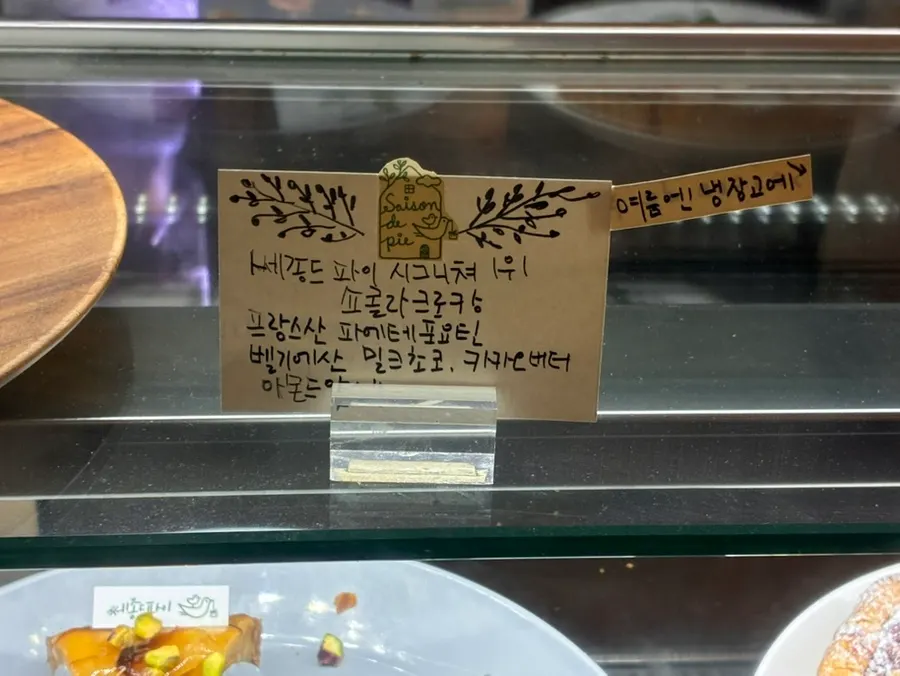 Saison
de
pie
여름엔 냉장고에
세종드 파이 시그니쳐 1위
쇼콜라크로캉
프랑스산 파에테포요틴
벨기에산 밀크초코, 카카오버터
아몬드